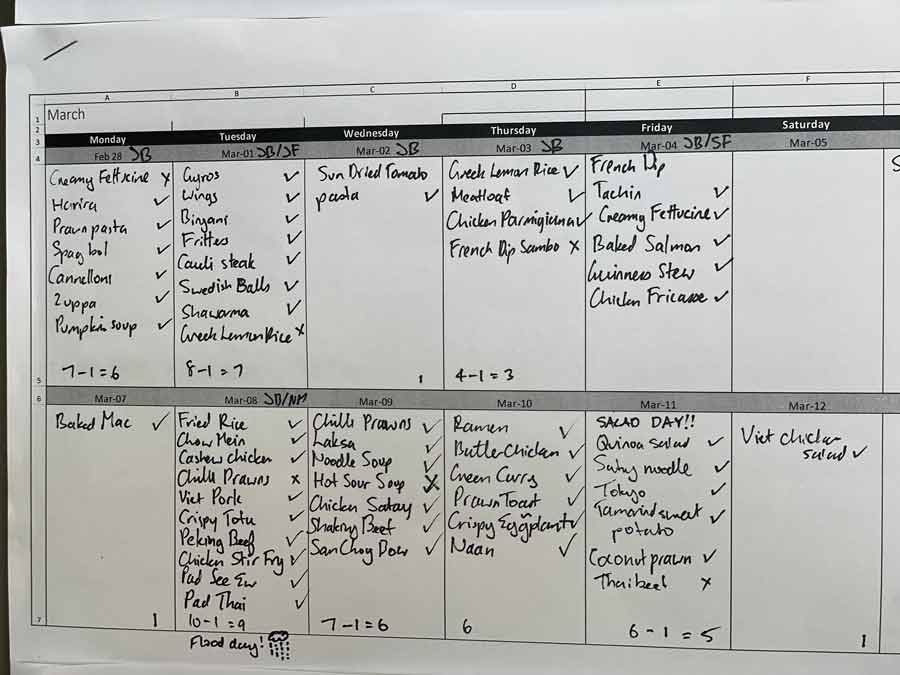 A B C D E F
1 March
2 Monday Tuesday Wednesday Thursday Friday Saturday
3
4 Feb 28 JB Mar-01 JB/JF Mar-02 JB Mar-03 JB Mar-04 JB/SF Mar-05
Creamy Fettucine ✗
Harira ✓
Prawn pasta ✓
Spag bol ✓
Cannelloni ✓
Zuppa ✓
Pumpkin soup ✓
7-1=6
Gyros ✓
Wings ✓
Biryani ✓
Frittes ✓
Cauli steak ✓
Swedish Balls ✓
Shawarma ✓
Greek Lemon Rice ✗
8-1=7
Sun Dried Tomato
pasta ✓
1
Greek Lemon Rice ✓
Meatloaf ✓
Chicken Parmigiana ✓
French Dip Sambo ✗
4-1=3
French Dip
Tachin ✓
Creamy Fettucine ✓
Baked Salmon ✓
Guinness Stew ✓
Chicken Fricasse ✓
5
6 Mar-07 Mar-08 JB/NM Mar-09 Mar-10 Mar-11 Mar-12
Baked Mac ✓
1
Fried Rice ✓
Chow Mein ✓
Cashew chicken ✓
Chilli Prawns ✗
Viet Pork ✓
Crispy Tofu ✓
Peking Beef ✓
Chicken Stir Fry ✓
Pad See Ew ✓
Pad Thai ✓
10-1=9
Chilli Prawns ✓
Laksa ✓
Noodle Soup ✓
Hot Sour Soup ✗
Chicken Satay ✓
Shaking Beef ✓
San Choy Bow ✓
7-1=6
Ramen ✓
Butter Chicken ✓
Green Curry ✓
Prawn Toast ✓
Crispy Eggplant ✓
Naan ✓
6
SALAD DAY!!
Quinoa salad ✓
Satay noodle ✓
Tokyo ✓
Tamarind sweet ✓
potato
Coconut prawn ✓
Thai beef ✗
6-1=5
Viet chicken
salad ✓
1
7
Flood day!